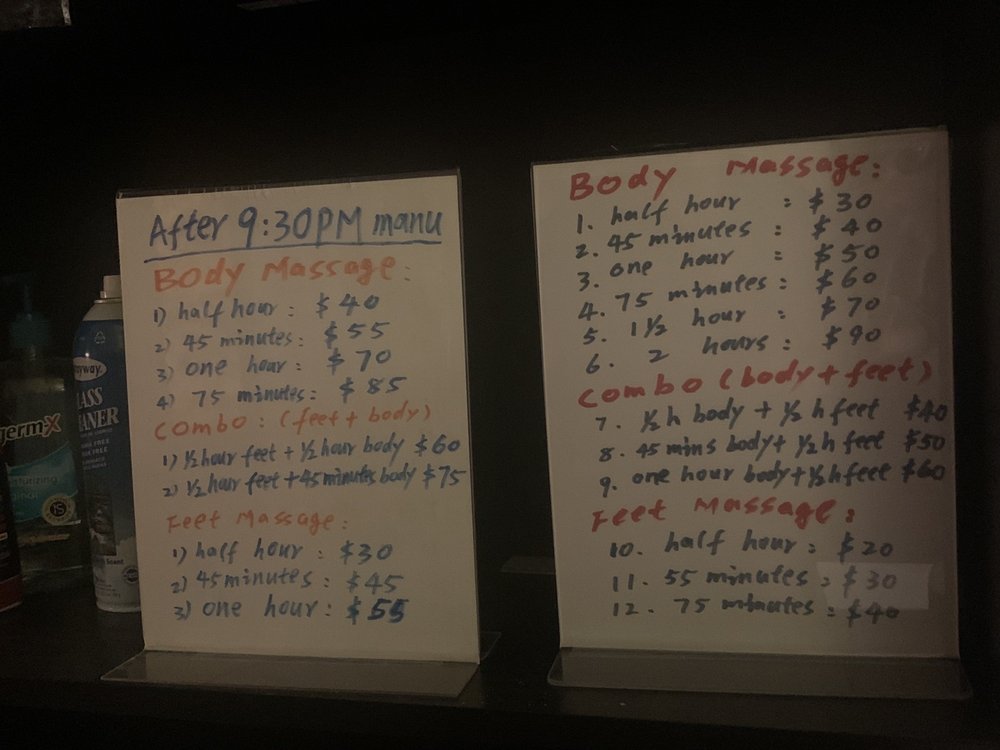 After 9:30PM manu
Body Massage:
1) half hour: $40
2) 45 minutes: $55
3) one hour: $70
4) 75 minutes: $85
Combo: (feet + body)
1) ½ hour feet + ½ hour body $60
2) ½ hour feet + 45 minutes body $75
Feet Massage:
1) half hour: $30
2) 45 minutes: $45
3) one hour: $55
Body Massage:
1. half hour : $30
2. 45 minutes : $40
3. one hour : $50
4. 75 minutes : $60
5. 1½ hour : $70
6. 2 hours : $90
Combo (body + feet)
7. ½ h body + ½ h feet $40
8. 45 mins body + ½ h feet $50
9. one hour body + ½ h feet $60
Feet Massage:
10. half hour : $20
11. 55 minutes : $30
12. 75 minutes : $40
germ-X